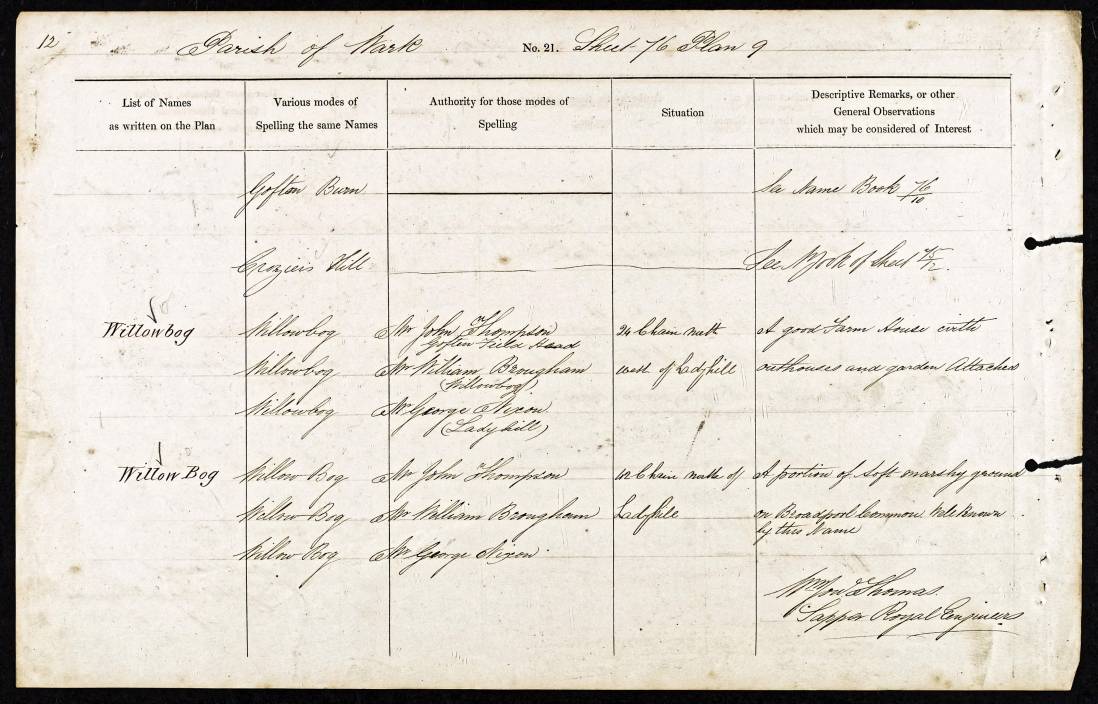 12 Parish of Wark No. 21. Sheet 76 Plan 9
List of Names as written on the Plan
Various modes of Spelling the same Names
Authority for those modes of Spelling
Situation
Descriptive Remarks, or other General Observations which may be considered of Interest
Gofton Burn See Name Book 76/10
Croziers Hill See N Book of Sheet 75/12.
Willowbog Willowbog Mr John Thompson 24 Chain north A good Farm House with
Gofton Field Head
Willowbog Mr William Brougham west of Ladyhill outhouses and garden Attached
(Willowbog)
Willowbog Mr George Nixon
(Ladyhill)
Willow Bog Willow Bog Mr John Thompson 12 Chain north of A portion of soft marshy ground
Willow Bog Mr William Brougham Ladyhill on Broadpool Common Well Known
by this Name
Willow Bog Mr George Nixon.
Thomas.
Sapper Royal Engineers